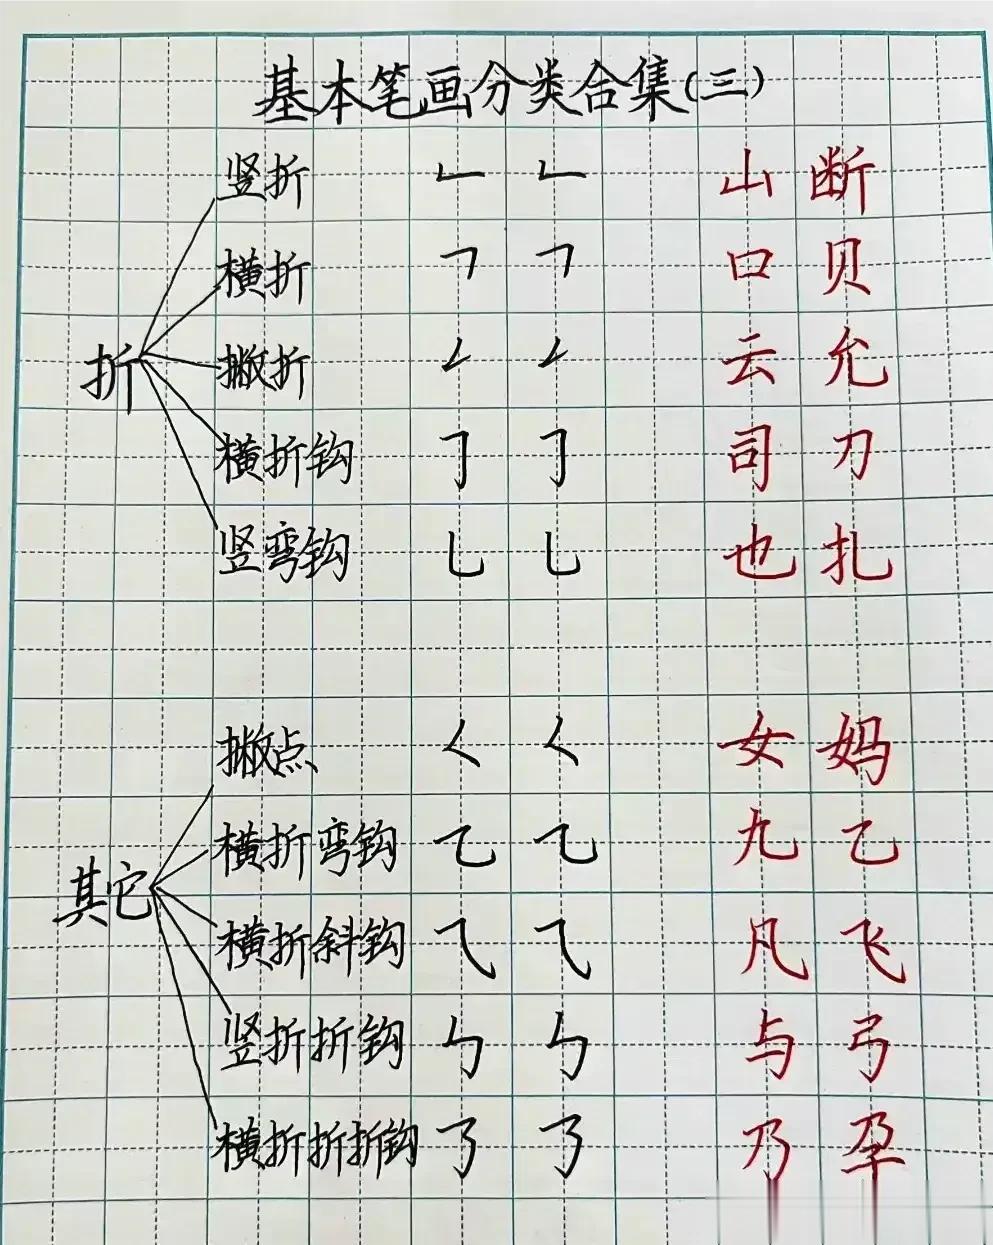 基本笔画分类合集(三)
竖折 𠃊 𠃊 山 断
横折 𠃍 𠃍 口 贝
撇折 𠃋 𠃋 云 允
折
横折钩 𠃌 𠃌 司 刀
竖弯钩 乚 乚 也 扎
撇点 𡿨 𡿨 女 妈
横折弯钩 乙 乙 九 乙
其它
横折斜钩 ⺄ ⺄ 凡 飞
竖折折钩 𠃑 𠃑 与 弓
横折折折钩 𠄎 𠄎 乃 孕